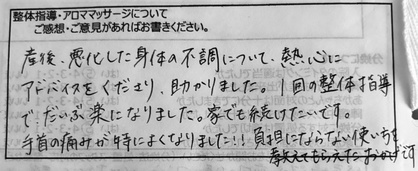 整体指導・アロママッサージについて
ご感想・ご意見があればお書きください。
産後、悪化した身体の不調について、熱心に
アドバイスをくださり、助かりました。1回の整体指導
で、だいぶ楽になりました。家でも続けたいです。
手首の痛みが特によくなりました!! 負担にならない使い方を
教えてもらえたおかげです